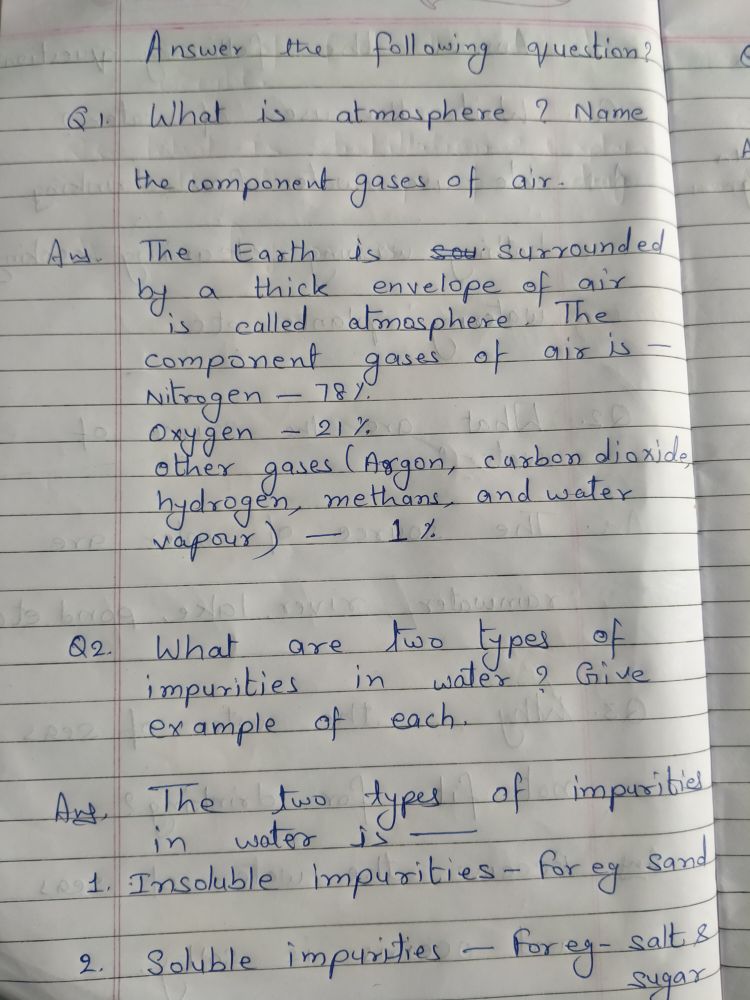 Answer the following question?
Q1. What is atmosphere ? Name
the component gases of air.
Ans. The Earth is surrounded
by a thick envelope of air
is called atmosphere. The
component gases of air is —
Nitrogen — 78%
Oxygen — 21%
other gases (Argon, carbon dioxide,
hydrogen, methans, and water
vapour) — 1%
Q2. What are two types of
impurities in water ? Give
example of each.
Ans. The two types of impurities
in water is —
1. Insoluble impurities – for eg sand
2. Soluble impurities – for eg – salt &
sugar